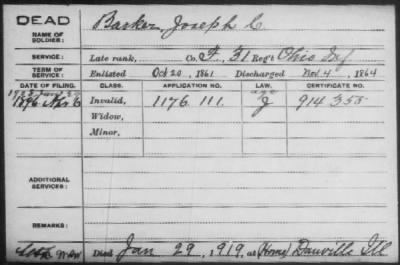 DEAD
NAME OF SOLDIER: Barker Joseph C
SERVICE: Late rank, Co. F, 31 Reg't Ohio Inf
TERM OF SERVICE: Enlisted Oct 20, 1861 Discharged Nov 4, 1864
DATE OF FILING. CLASS. APPLICATION NO. LAW. CERTIFICATE NO.
1896 Apr 6 Invalid, 1176 111. J 914 355
Widow,
Minor,
ADDITIONAL SERVICES:
REMARKS:
Died Jan 29, 1919, at (Home) Danville Ill